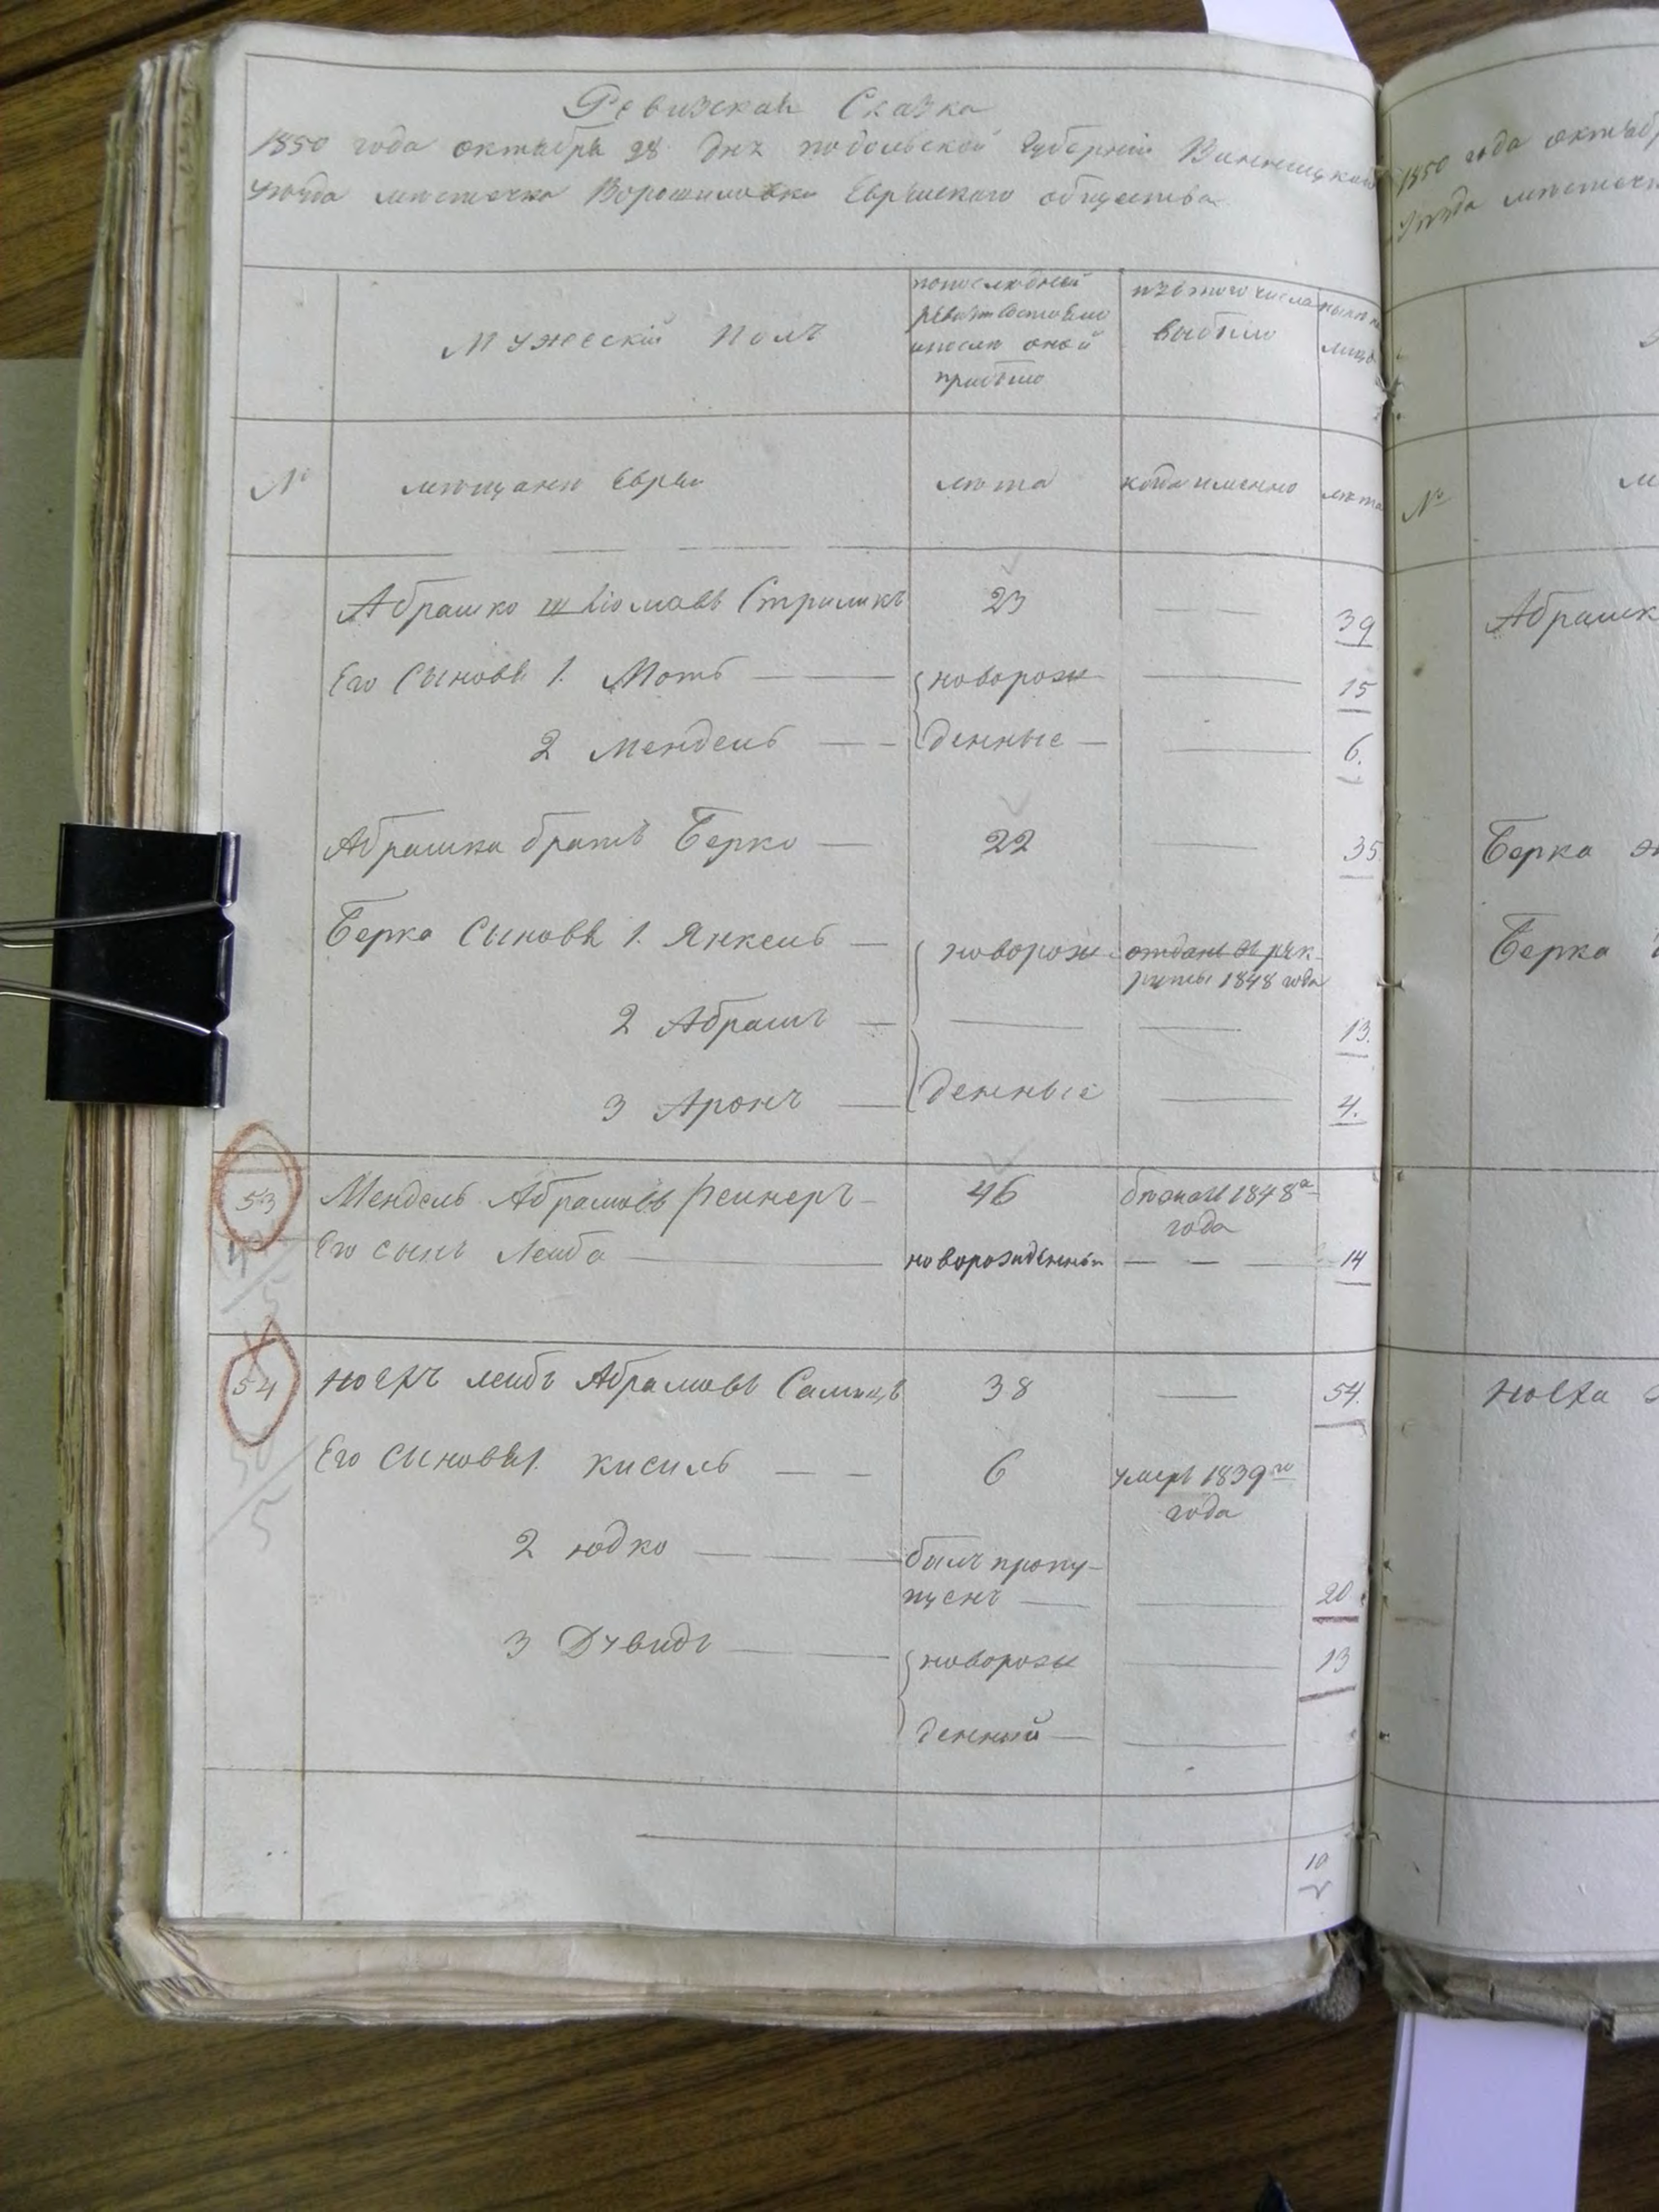 Ревизская Сказка
1850 года октября 28 дня подольской Губерніи Винницкаго
уѣзда мѣстечка Ворошиловки Еврейскаго общества
мужескій полъ
попослѣдней
ревизіи состояло
ипослѣ оной
прибыло
изъ этого числа
выбыло
нынѣ на
лицо
№
мѣщане Евреи
лѣта
когда именно
лѣта
Абрашко Шліомовъ Стрыликъ 23 — — 39
Его Сыновья 1. Моть — — { новорож — 15
2 Мендель — — { денные — — 6.
Абрашка братъ Берко — 22 — 35
Берка Сыновья 1. Янкель — { новорож отданъ въ рек-
руты 1848 года
2 Абрамъ — — — 13.
3 Аронъ — { денные — 4.
53 Мендель Абрамовъ Рейнеръ — 46 бѣжалъ 1848а
года
Его сынъ Лейба — новорожденный — — — 14
54 Носхъ лейбъ Абрамовъ 38 — 54.
Его Сыновья 1. кисиль — — 6 умеръ 1839го
года
2 юдко — — — былъ пропу-
щенъ — — 20
3 Дувидъ — { новорож — 13
денный — —
10
1850 года октяб
уѣзда мѣстечк
№
Абрашк
Берка
Берка
Носха